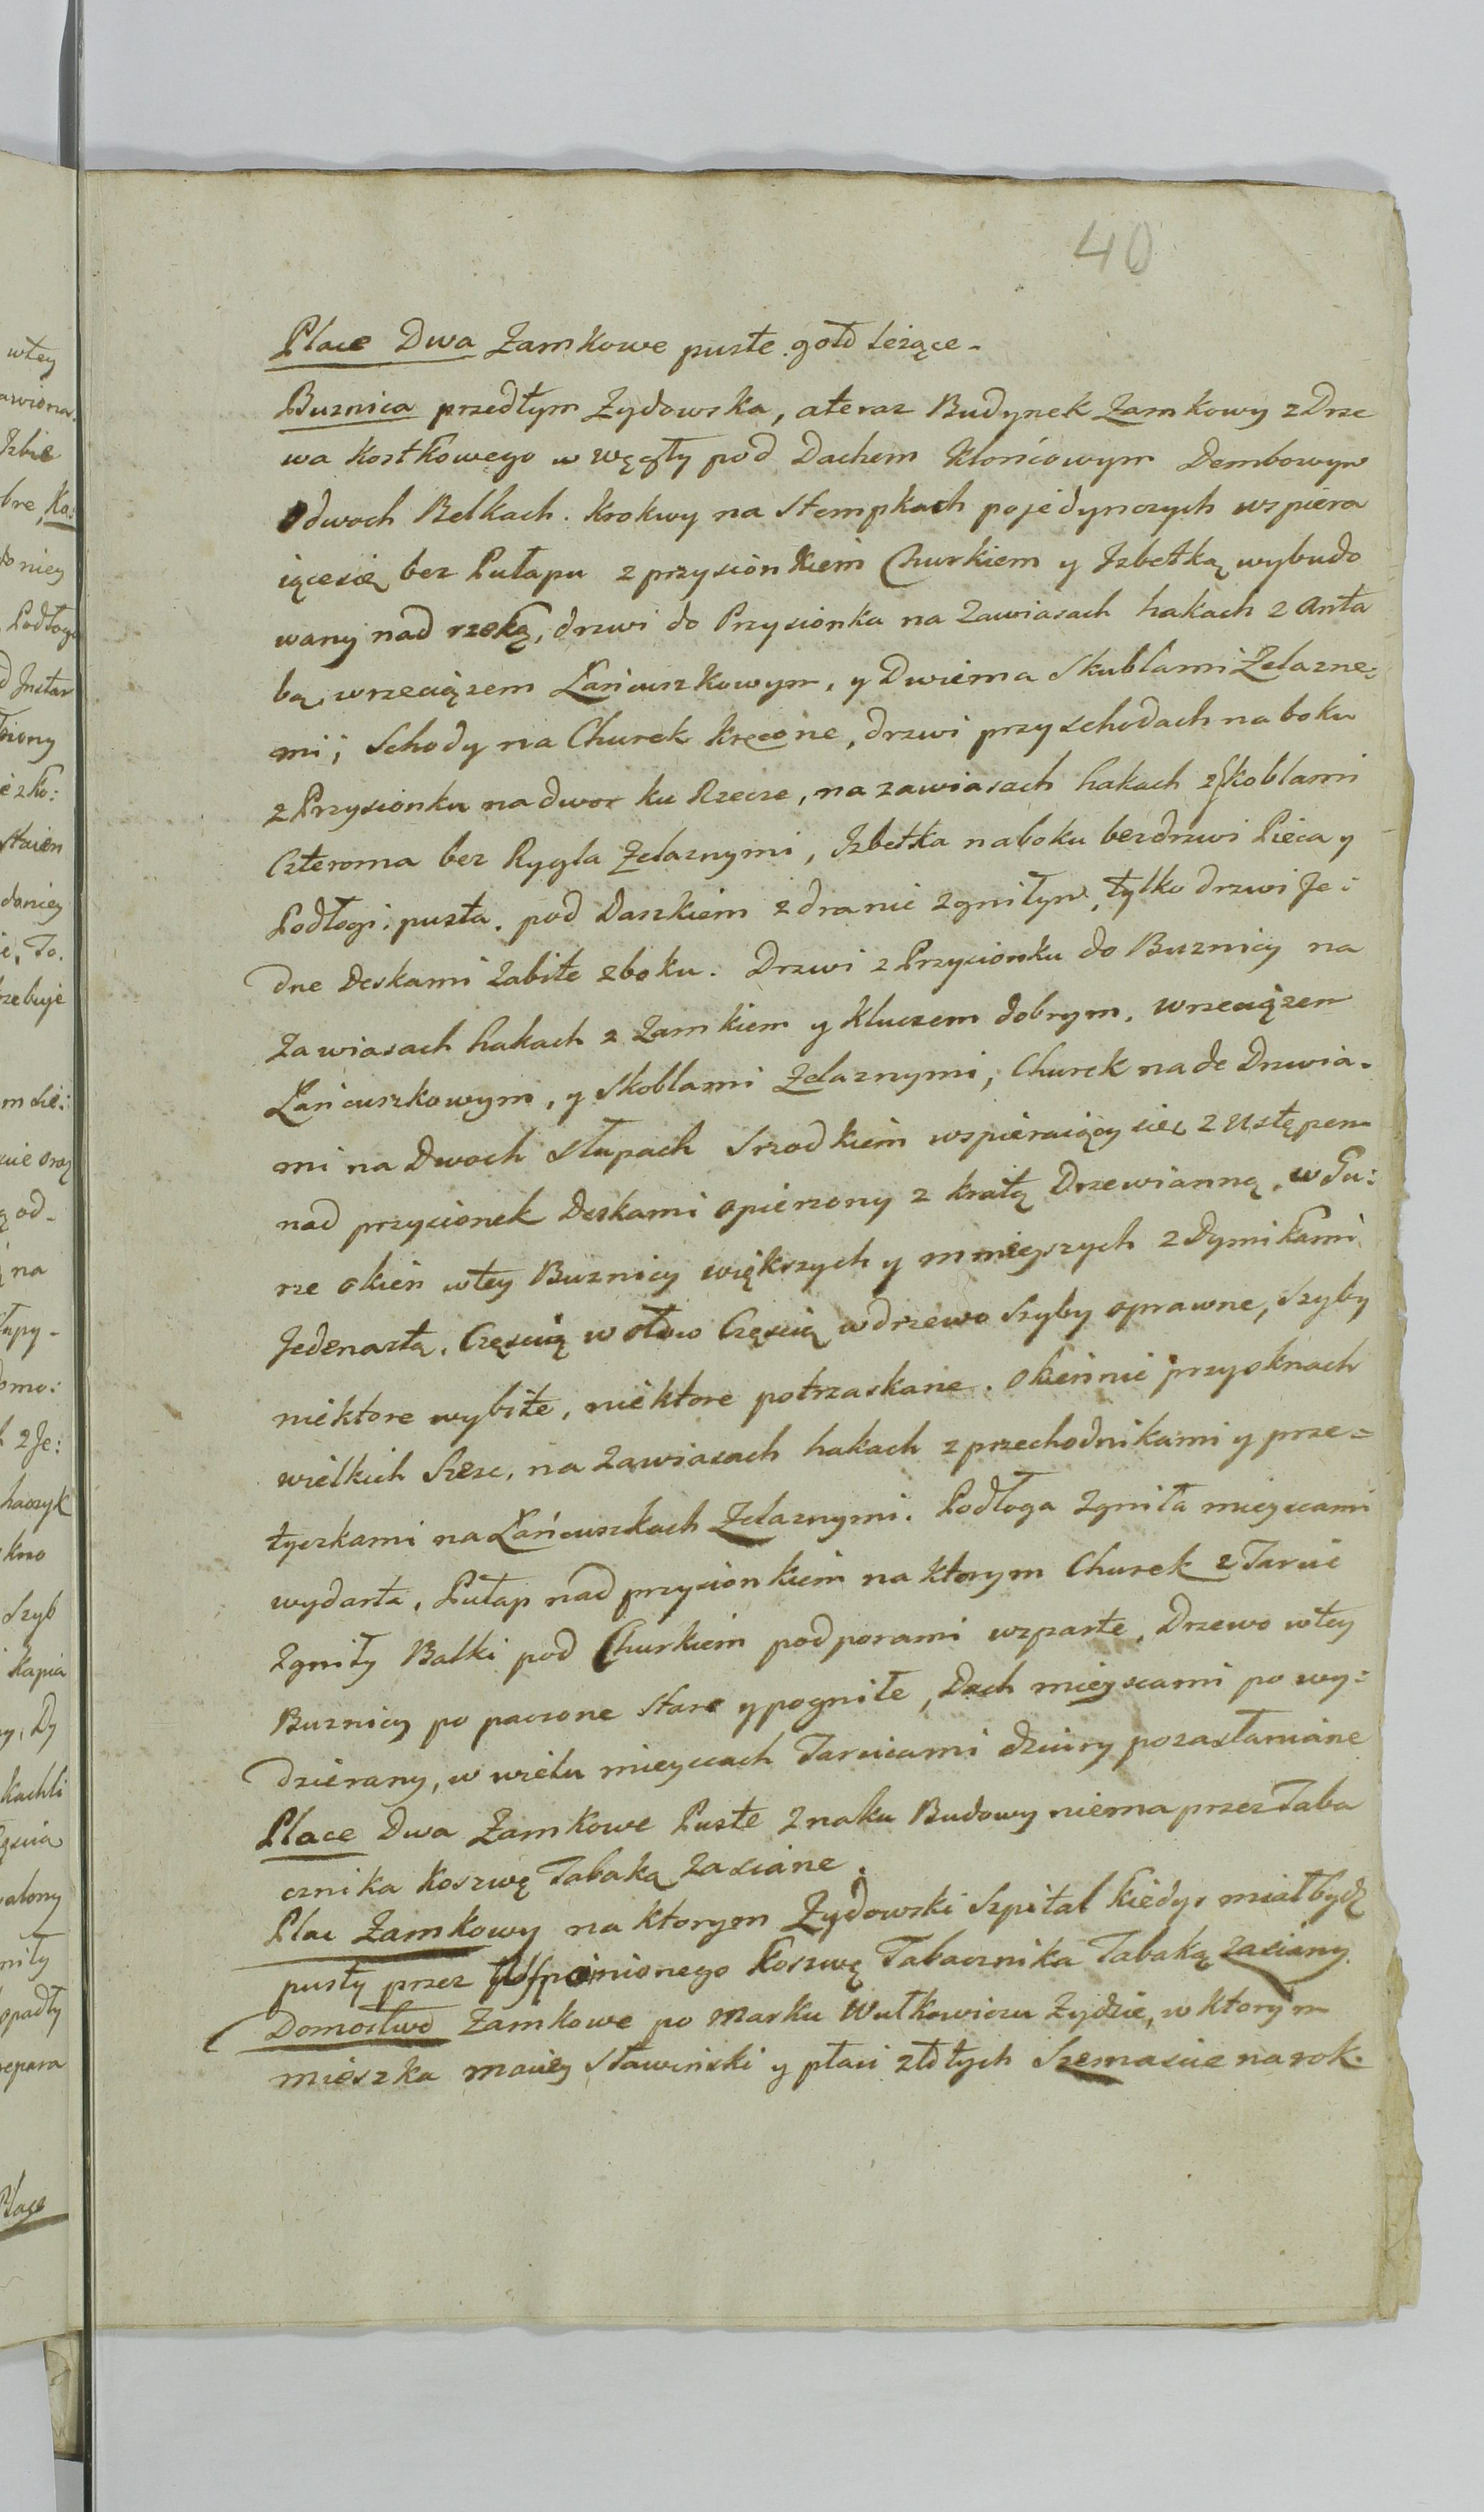 40
Place Dwa Zamkowe puste gołd leżące.
Buznica przedtym Zydowska, ateraz Budynek Zamkowy z Drze
wa kostkowego w węgły pod Dachem Kłońcowym Dembowym
O dwoch Belkach. Krokwy na Stempkach pojedynczych wspiera
iącesię bez Pułapu z przysionkiem Churkiem y Izbetką wybudo
wany nad rzeką, drzwi do Przysionka na Zawiasach hakach z Anta
bą, wrzeciązem Łańcuszkowym, y Dwiema Skublami Zelazne:
mi; Schody na Churek kręcone, drzwi przy schodach na boku
z Przysionku na dwor ku Rzecze, na zawiasach hakach z Skoblami
Czteroma bez Rygla Zelaznymi, Izbetka naboku bez drzwi Pieca y
Podłogi: pusta. pod Daszkiem z dranic zgniłym, tylko drzwi Je:
dne Deskami Zabite zboku. Drzwi z Przysionku do Buznicy na
Zawiasach hakach z Zamkiem y Kluczem dobrym, wrzeciązem
Łańcuszkowym, y Skoblami Zelaznymi, Churek nade Drzwia-
mi na Dwoch Słupach Srzodkiem wspieraiący się z Ustępem
nad przysionek Deskami opierzony z kratą Drzewianną, w Gu:
rze okien wtey Buznicy większych y mnieyszych z Dymikami
Jedenasta, Częscią w ołow Częscią w drzewo Szyby oprawne, Szyby
niektore wybite, niektore potrzaskane. Okiennic przyoknach
wielkich Szesc, na Zawiasach hakach z przechodnikami y prze=
tyczkami na Łańcuszkach Zelaznymi. Podłoga Zgniła mieyscami
wydarta, Pułap nad przysionkiem na ktorym Churek z Tarcic
Zgniły Balki pod Churkiem podporami wzparte, Drzewo wtey
Buznicy popaczone Stare y pogniłe, Dach mieyscami powy:
dzierany, w wielu mieyscach Tarcicami dziury pozasłaniane
Place Dwa Zamkowe Puste Znaku Budowy niema przez Taba
cznika Koszwę Tabaką Zasiane.
Plac Zamkowy na ktorym Zydowski Szpital kiedys miał bydz
pusty przez Koszwę Tabacznika Tabaką zasiany.
Domostwo Zamkowe po Marku Wulkowiczu Zydzie, w ktorym
mieszka Maciey Sławinski y płaci złotych Szesnascie na rok.